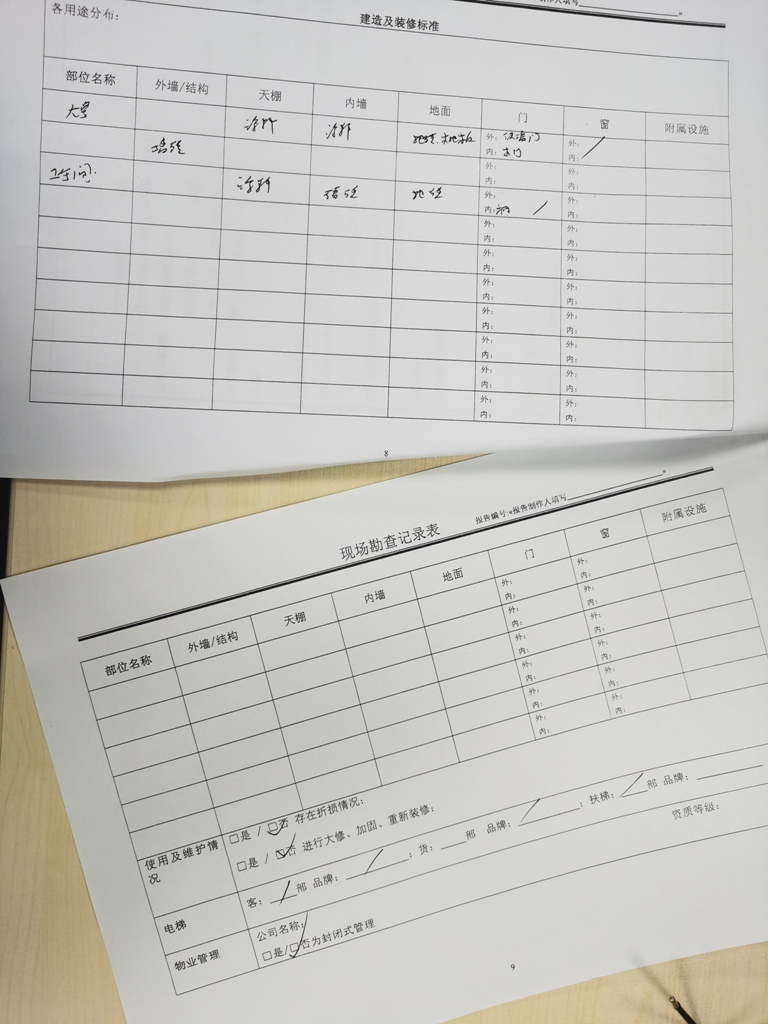 制作人填写
各用途分布：
建造及装修标准
部位名称 外墙/结构 天棚 内墙 地面 门 窗 附属设施
涂料 涂料 外： 外：
内：木门 内：
墙砖 外： 外：
内： 内：
卫生间 涂料 墙砖 地砖 外： 外：
内： 内：
外： 外：
内： 内：
外： 外：
内： 内：
外： 外：
内： 内：
外： 外：
内： 内：
外： 外：
内： 内：
外： 外：
内： 内：
外： 外：
内： 内：
8
报告编号:«报告制作人填写 »
现场勘查记录表
部位名称 外墙/结构 天棚 内墙 地面 门 窗 附属设施
外： 外：
内： 内：
外： 外：
内： 内：
外： 外：
内： 内：
外： 外：
内： 内：
外： 外：
内： 内：
外： 外：
内： 内：
使用及维护情况
□是 / □否 存在折损情况：
□是 / □否 进行大修、加固、重新装修：
电梯
客： 部 品牌： ；货： 部 品牌： ；扶梯： 部 品牌：
物业管理
公司名称： 资质等级：
□是/□否为封闭式管理
9